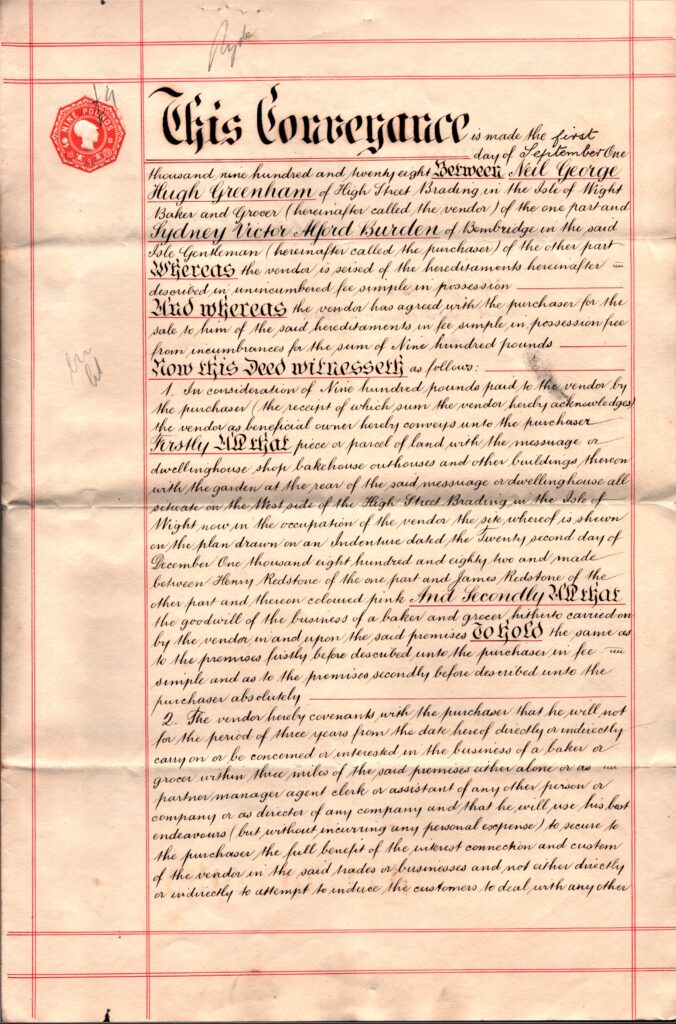 Ryde
NINE POUNDS
This Conveyance is made the first
day of September One
thousand nine hundred and twenty eight Between Neil George
Hugh Greenham of High Street Brading in the Isle of Wight
Baker and Grocer (hereinafter called the vendor) of the one part and
Sydney Victor Alford Burden of Bembridge in the said
Isle Gentleman (hereinafter called the purchaser) of the other part
Whereas the vendor is seised of the hereditaments hereinafter
described in unincumbered fee simple in possession
And whereas the vendor has agreed with the purchaser for the
sale to him of the said hereditaments in fee simple in possession free
from incumbrances for the sum of Nine hundred pounds
Now this Deed witnesseth as follows:
1. In consideration of Nine hundred pounds paid to the vendor by
the purchaser (the receipt of which sum the vendor hereby acknowledges)
the vendor as beneficial owner hereby conveys unto the purchaser
Firstly All that piece or parcel of land with the messuage or
dwellinghouse shop bakehouse outhouses and other buildings thereon
with the garden at the rear of the said messuage or dwellinghouse all
situate on the West side of the High Street Brading in the Isle of
Wight now in the occupation of the vendor the site whereof is shewn
on the plan drawn on an Indenture dated the Twenty second day of
December One thousand eight hundred and eighty two and made
between Henry Redstone of the one part and James Redstone of the
other part and thereon coloured pink And Secondly All that
the goodwill of the business of a baker and grocer hitherto carried on
by the vendor in and upon the said premises To hold the same as
to the premises firstly before described unto the purchaser in fee
simple and as to the premises secondly before described unto the
purchaser absolutely
2. The vendor hereby covenants with the purchaser that he will not
for the period of three years from the date hereof directly or indirectly
carry on or be concerned or interested in the business of a baker or
grocer within three miles of the said premises either alone or as
partner manager agent clerk or assistant of any other person or
company or as director of any company and that he will use his best
endeavours (but without incurring any personal expense) to secure to
the purchaser the full benefit of the interest connection and custom
of the vendor in the said trades or businesses and not either directly
or indirectly to attempt to induce the customers to deal with any other